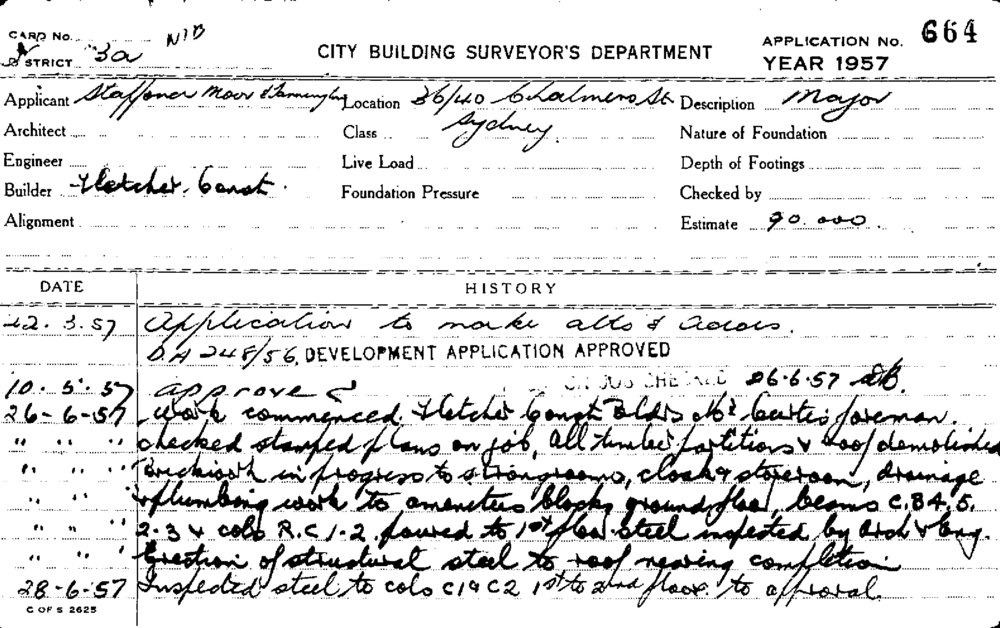 CARD No. NIB
DISTRICT 3a
CITY BUILDING SURVEYOR'S DEPARTMENT
APPLICATION No. 664
YEAR 1957
Applicant Moor & Location 36/40 Chalmers St Description Major
Sydney.
Architect Class Nature of Foundation
Engineer Live Load Depth of Footings
Builder Fletcher Const. Foundation Pressure Checked by
Alignment Estimate 90.000.
DATE HISTORY
22.3.57 Application to make alts & addns.
DA 248/56, DEVELOPMENT APPLICATION APPROVED
10.5.57 approved ON JOB CHECKED 26.6.57
26-6-57 Work commenced. Fletcher Const Bldrs Mr Curtis foreman.
" " " checked stamped plans on job, all timber partitions & roof demolished
" " " Brickwork in progress to strongrooms, cloak & storeroom, drainage
" " " & plumbing work to amenities blocks ground floor, beams C.B4.5.
" " " 2-3 & cols R.C 1-2 poured to 1st floor steel inspected by Arch & Eng.
" " " Erection of structural steel to roof nearing completion
28-6-57 Inspected steel to cols C1 & C2 1st to 2nd floor. to approval.
C OF S 2625